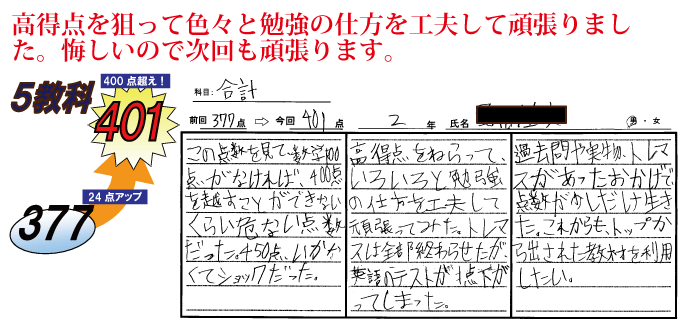 高得点を狙って色々と勉強の仕方を工夫して頑張りまし
た。悔しいので次回も頑張ります。
5教科
400点超え!
401
24点アップ
377
科目:合計
前回 377点 ⇨ 今回 401点 2年 氏名 男・女
この点数を見て、数学100
点がなければ、400点
を越すことができない
くらい危ない点数
だった。450点、いかな
くてショックだった。
高得点をねらって、
いろいろと勉強
の仕方を工夫して
頑張ってみた。トレマ
スは全部終わらせたが、
英語のテストが1点下が
ってしまった。
過去問や実物、トレマ
スがあったおかげで、
点数が少しだけ生き
た。これからも、トップか
ら出された教材を利用
したい。